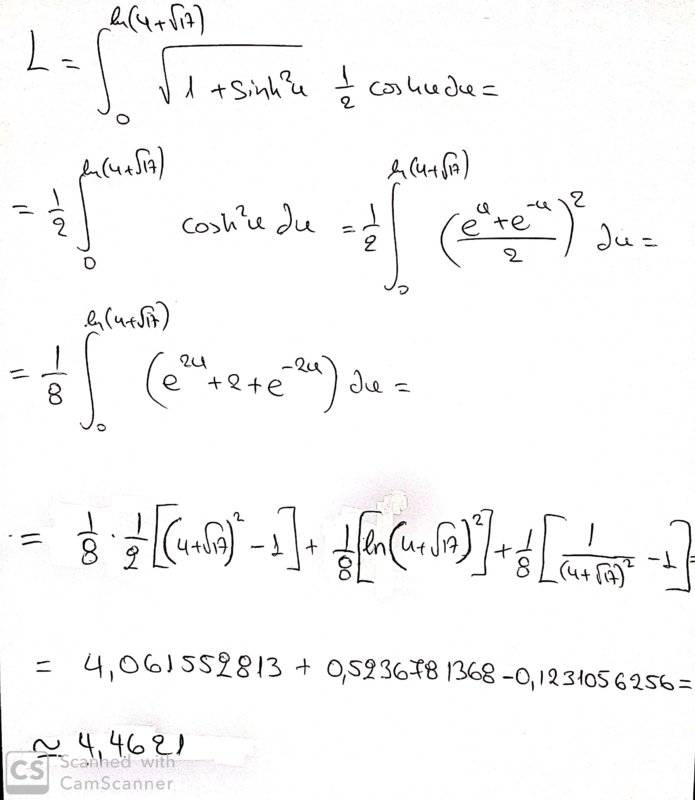 L = ∫₀^{ln(4+√17)} √(1 + sinh²u) 1/2 coshu du =
= 1/2 ∫₀^{ln(4+√17)} cosh²u du = 1/2 ∫₀^{ln(4+√17)} ((e^u + e^{-u})/2)² du =
= 1/8 ∫₀^{ln(4+√17)} (e^{2u} + 2 + e^{-2u}) du =
= 1/8 · 1/2 [(4+√17)² - 1] + 1/8 [ln(4+√17)²] + 1/8 [1/(4+√17)² - 1] =
= 4,061552813 + 0,5236781368 - 0,1231056256 =
≈ 4,4621
CS Scanned with
CamScanner